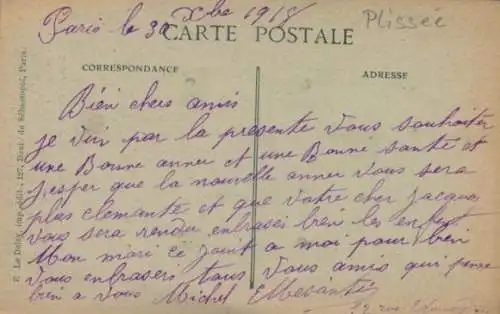 Paris le 30 Xbre 1918
Plissée
CARTE POSTALE
CORRESPONDANCE
ADRESSE
Bien chers amis
je vien par la presente vous souhaiter
une Bonne anner et une Bonne santé et
j'esper que la nouvelle anner vous sera
plus clemante et que votre cher Jacques
vous sera rendu enbrasés bien les enfant
Mon mari ce joint a moi pour bien
vous enbrasers tous vous amis qui pense
bien a vous Michel
rue
Le Deley, imp.-édit., 127, Boul. de Sébastopol, Paris.